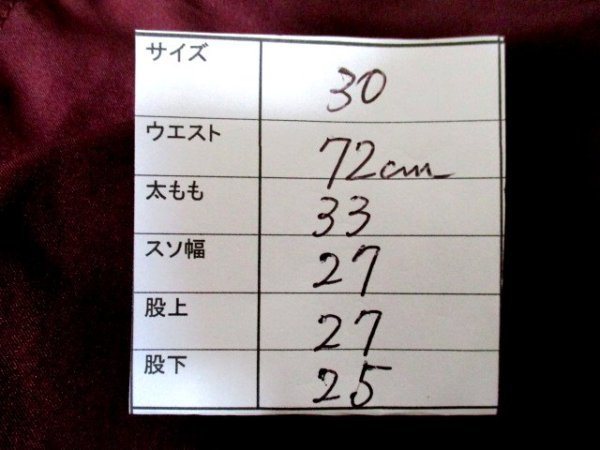 サイズ 30
ウエスト 72cm
太もも 33
スソ幅 27
股上 27
股下 25